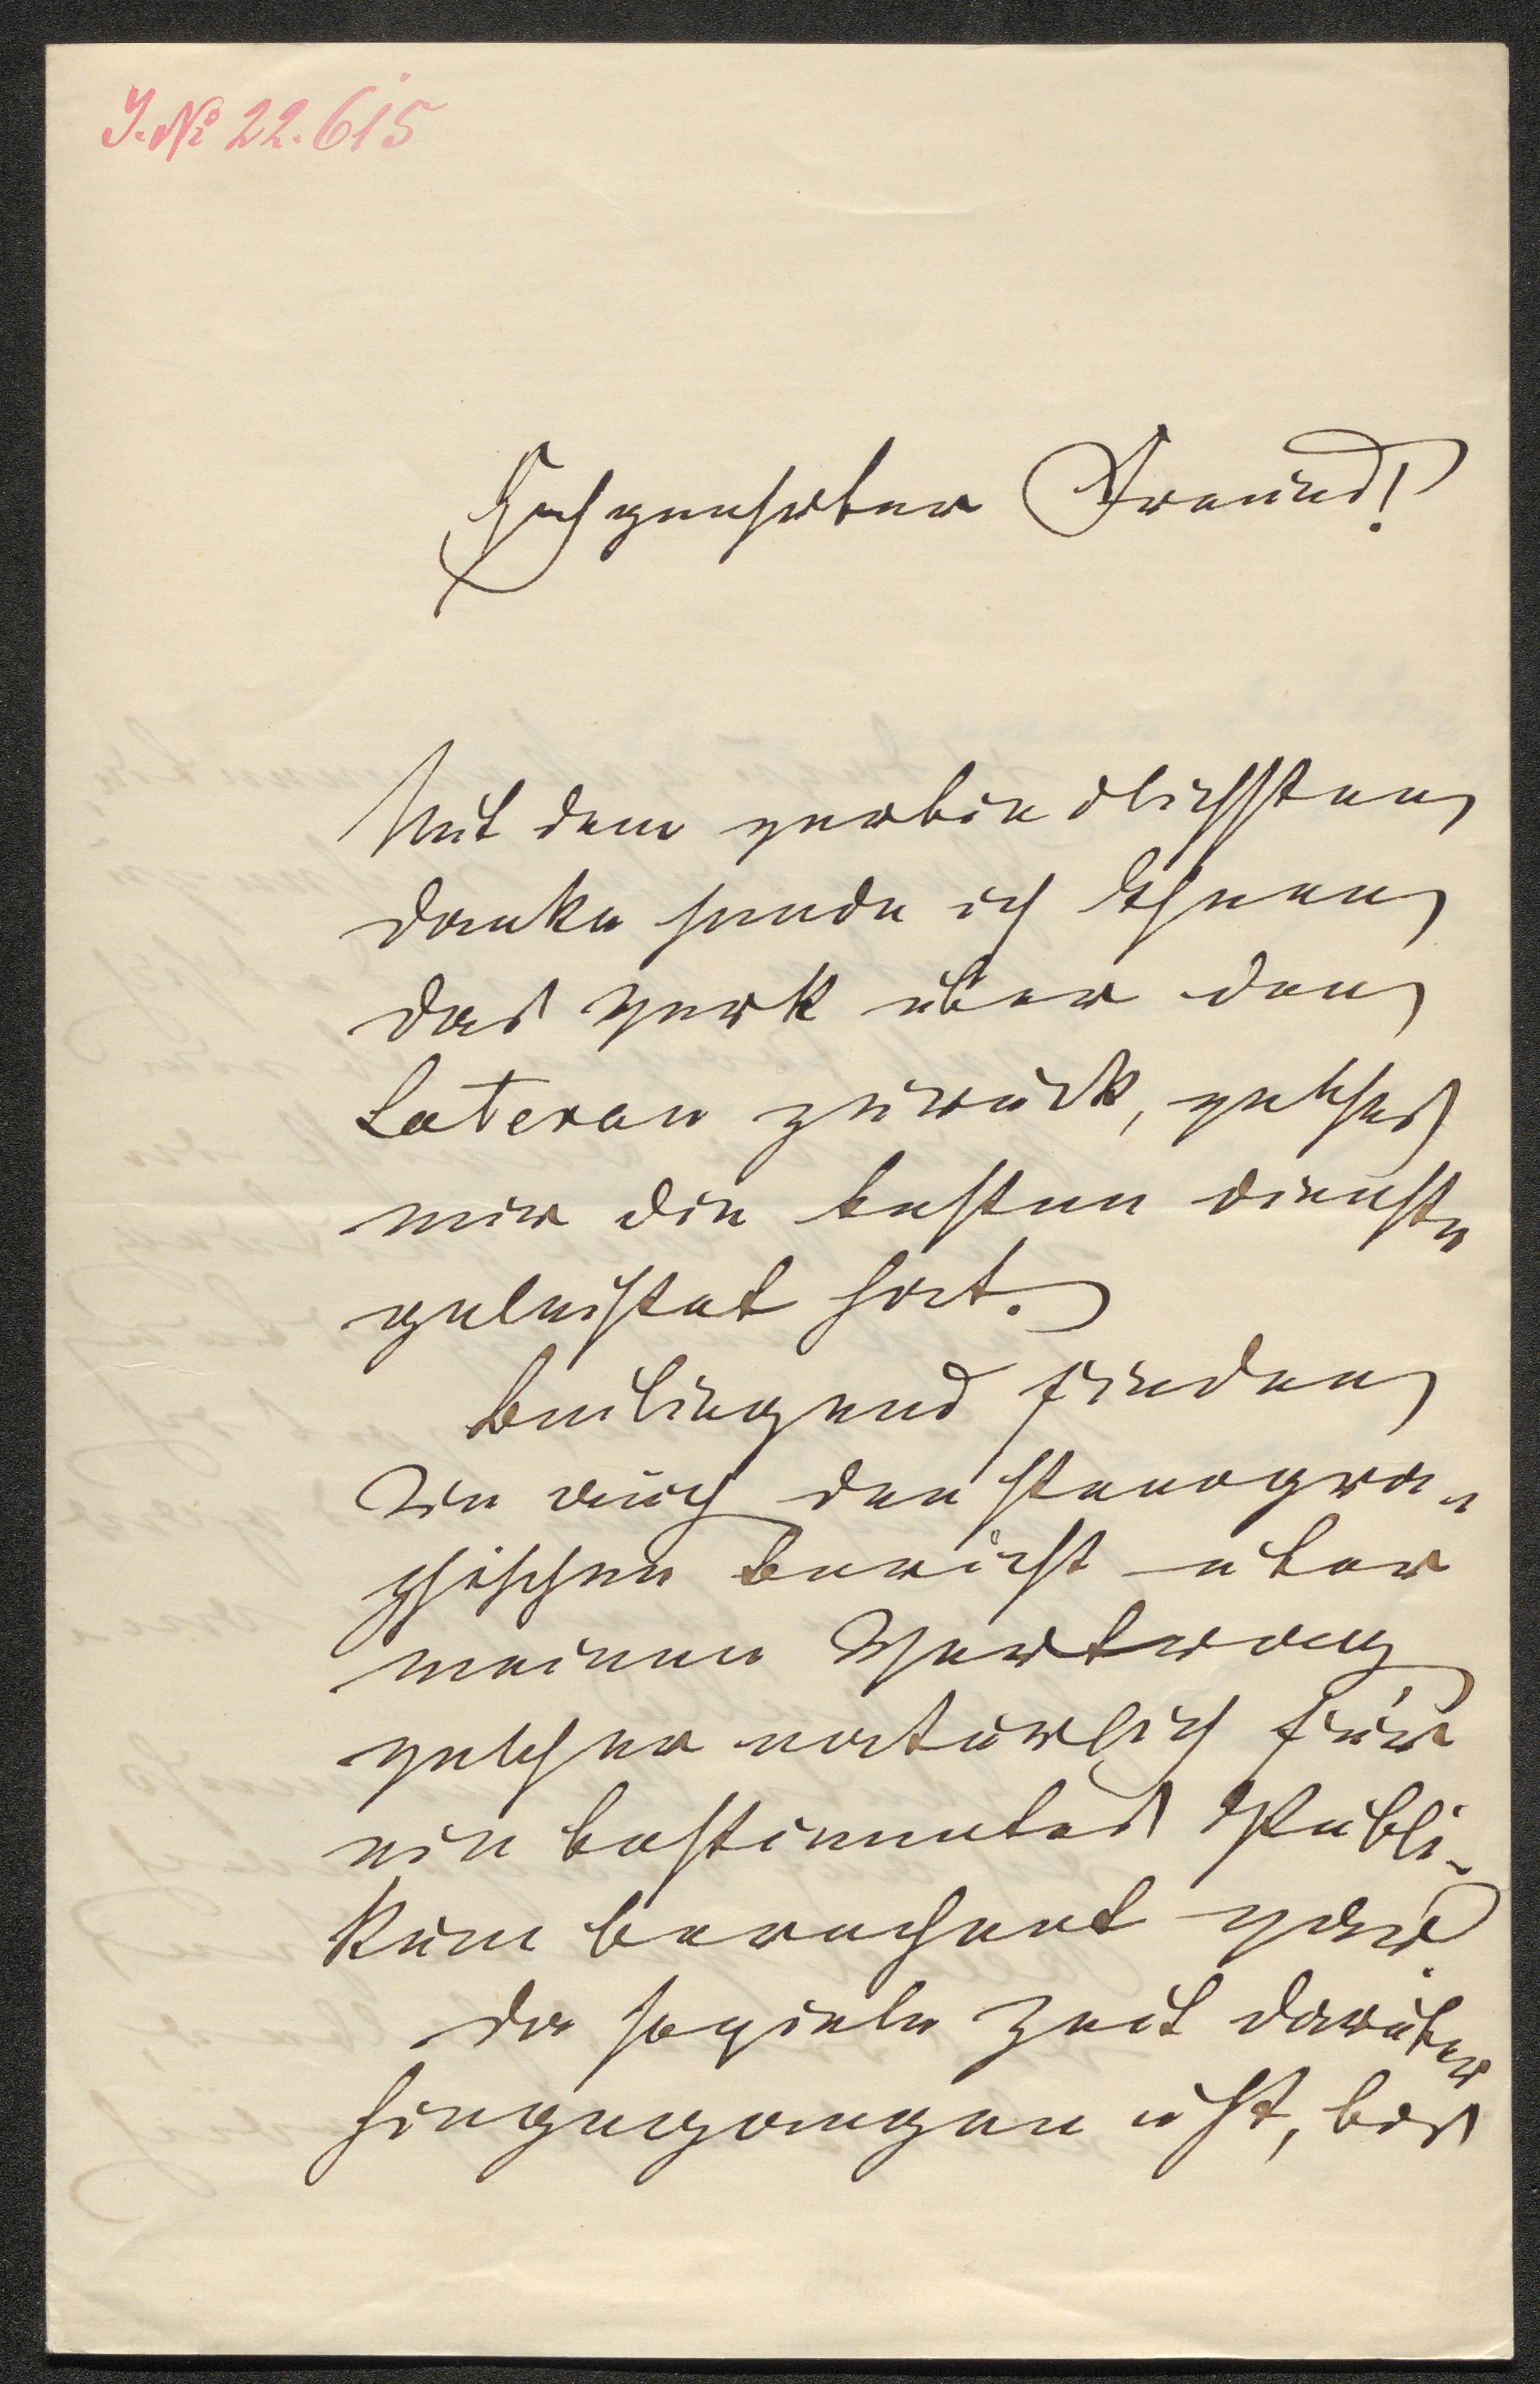 J. No 22.615
Hochgeehrter Freund!
Mit dem verbindlichsten
Danke sende ich Ihnen
das Werk über den
Lateran zurück, welches
mir die besten Dienste
geleistet hat.
Beiliegend finden
Sie auch den stenogra-
phischen Bericht über
meinen Vortrag
welcher natürlich für
ein bestimmtes Publi-
kum berechnet war.
Da so viele Zeit darüber
hingegangen ist, bis